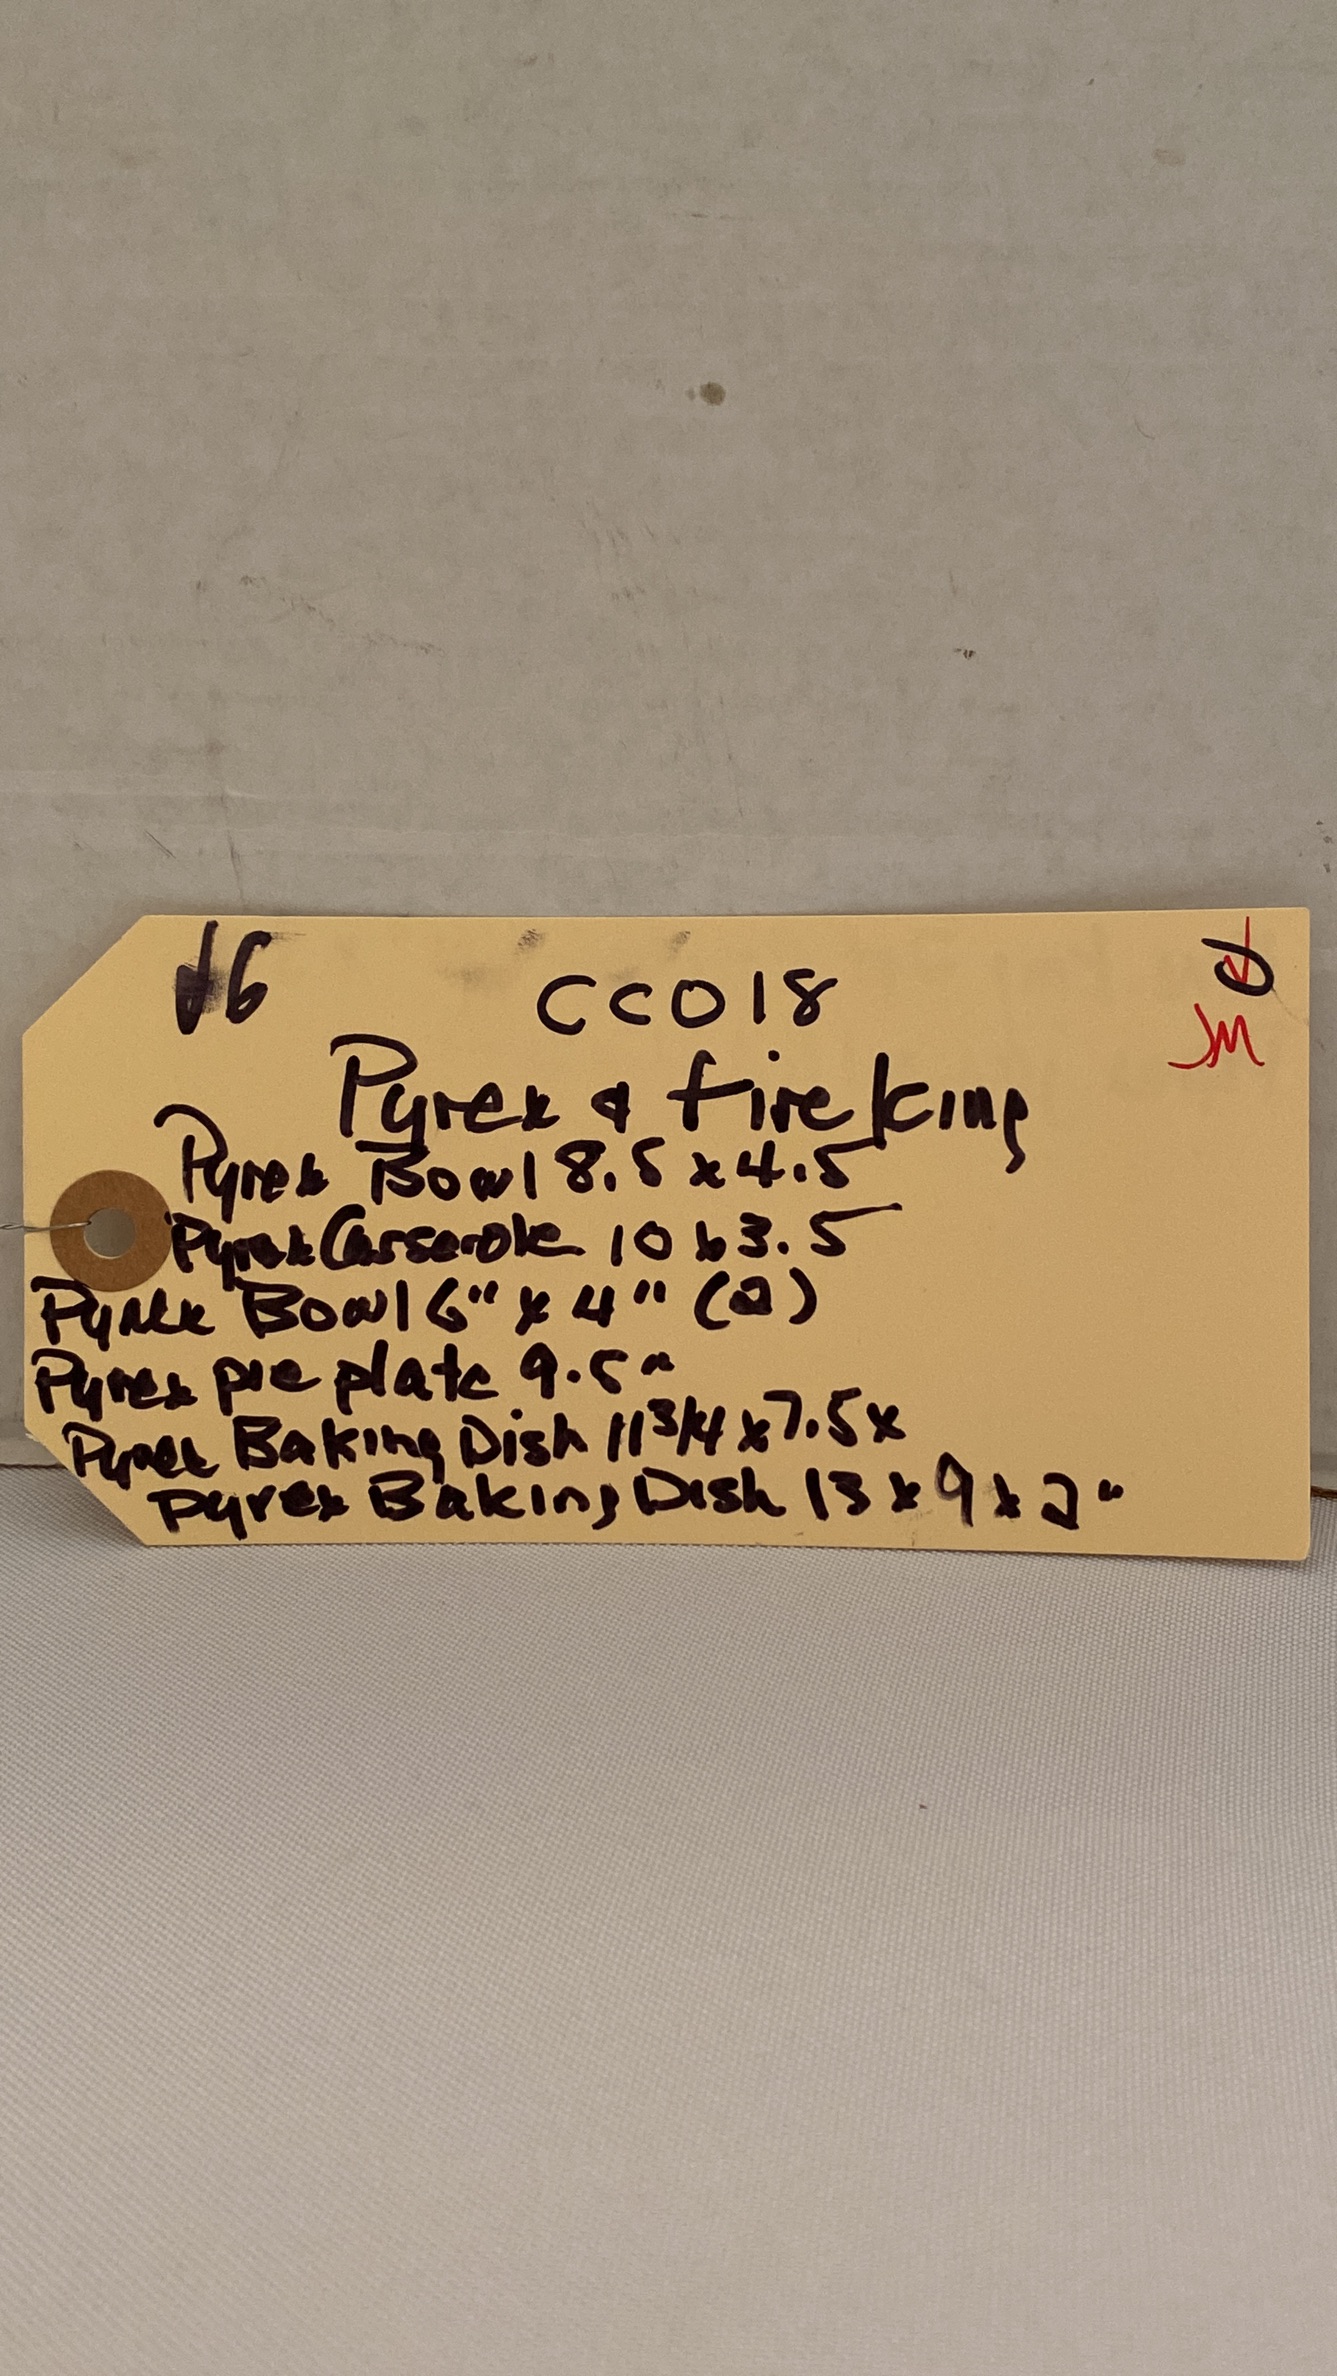 16
CC018
JM
Pyrex & fire king
Pyrex Bowl 8.5 x 4.5
Pyrex Casserole 10 x 3.5
Pyrex Bowl 6" x 4" (2)
Pyrex pie plate 9.5"
Pyrex Baking Dish 11 3/4 x 7.5 x
Pyrex Baking Dish 13 x 9 x 2"